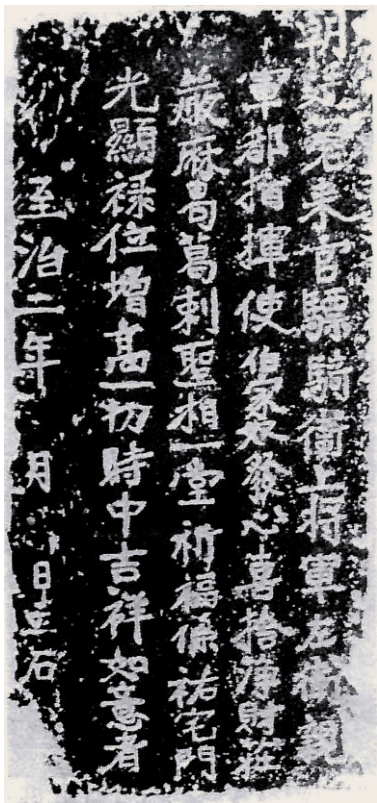 朝廷差来官驃騎衛上將軍左衛親
軍都指揮使伯家奴發心喜捨淨財莊
嚴麻曷葛剌聖相一堂祈福保祐宅門
光顯禄位增高一切時中吉祥如意者
至治二年 月 日立石